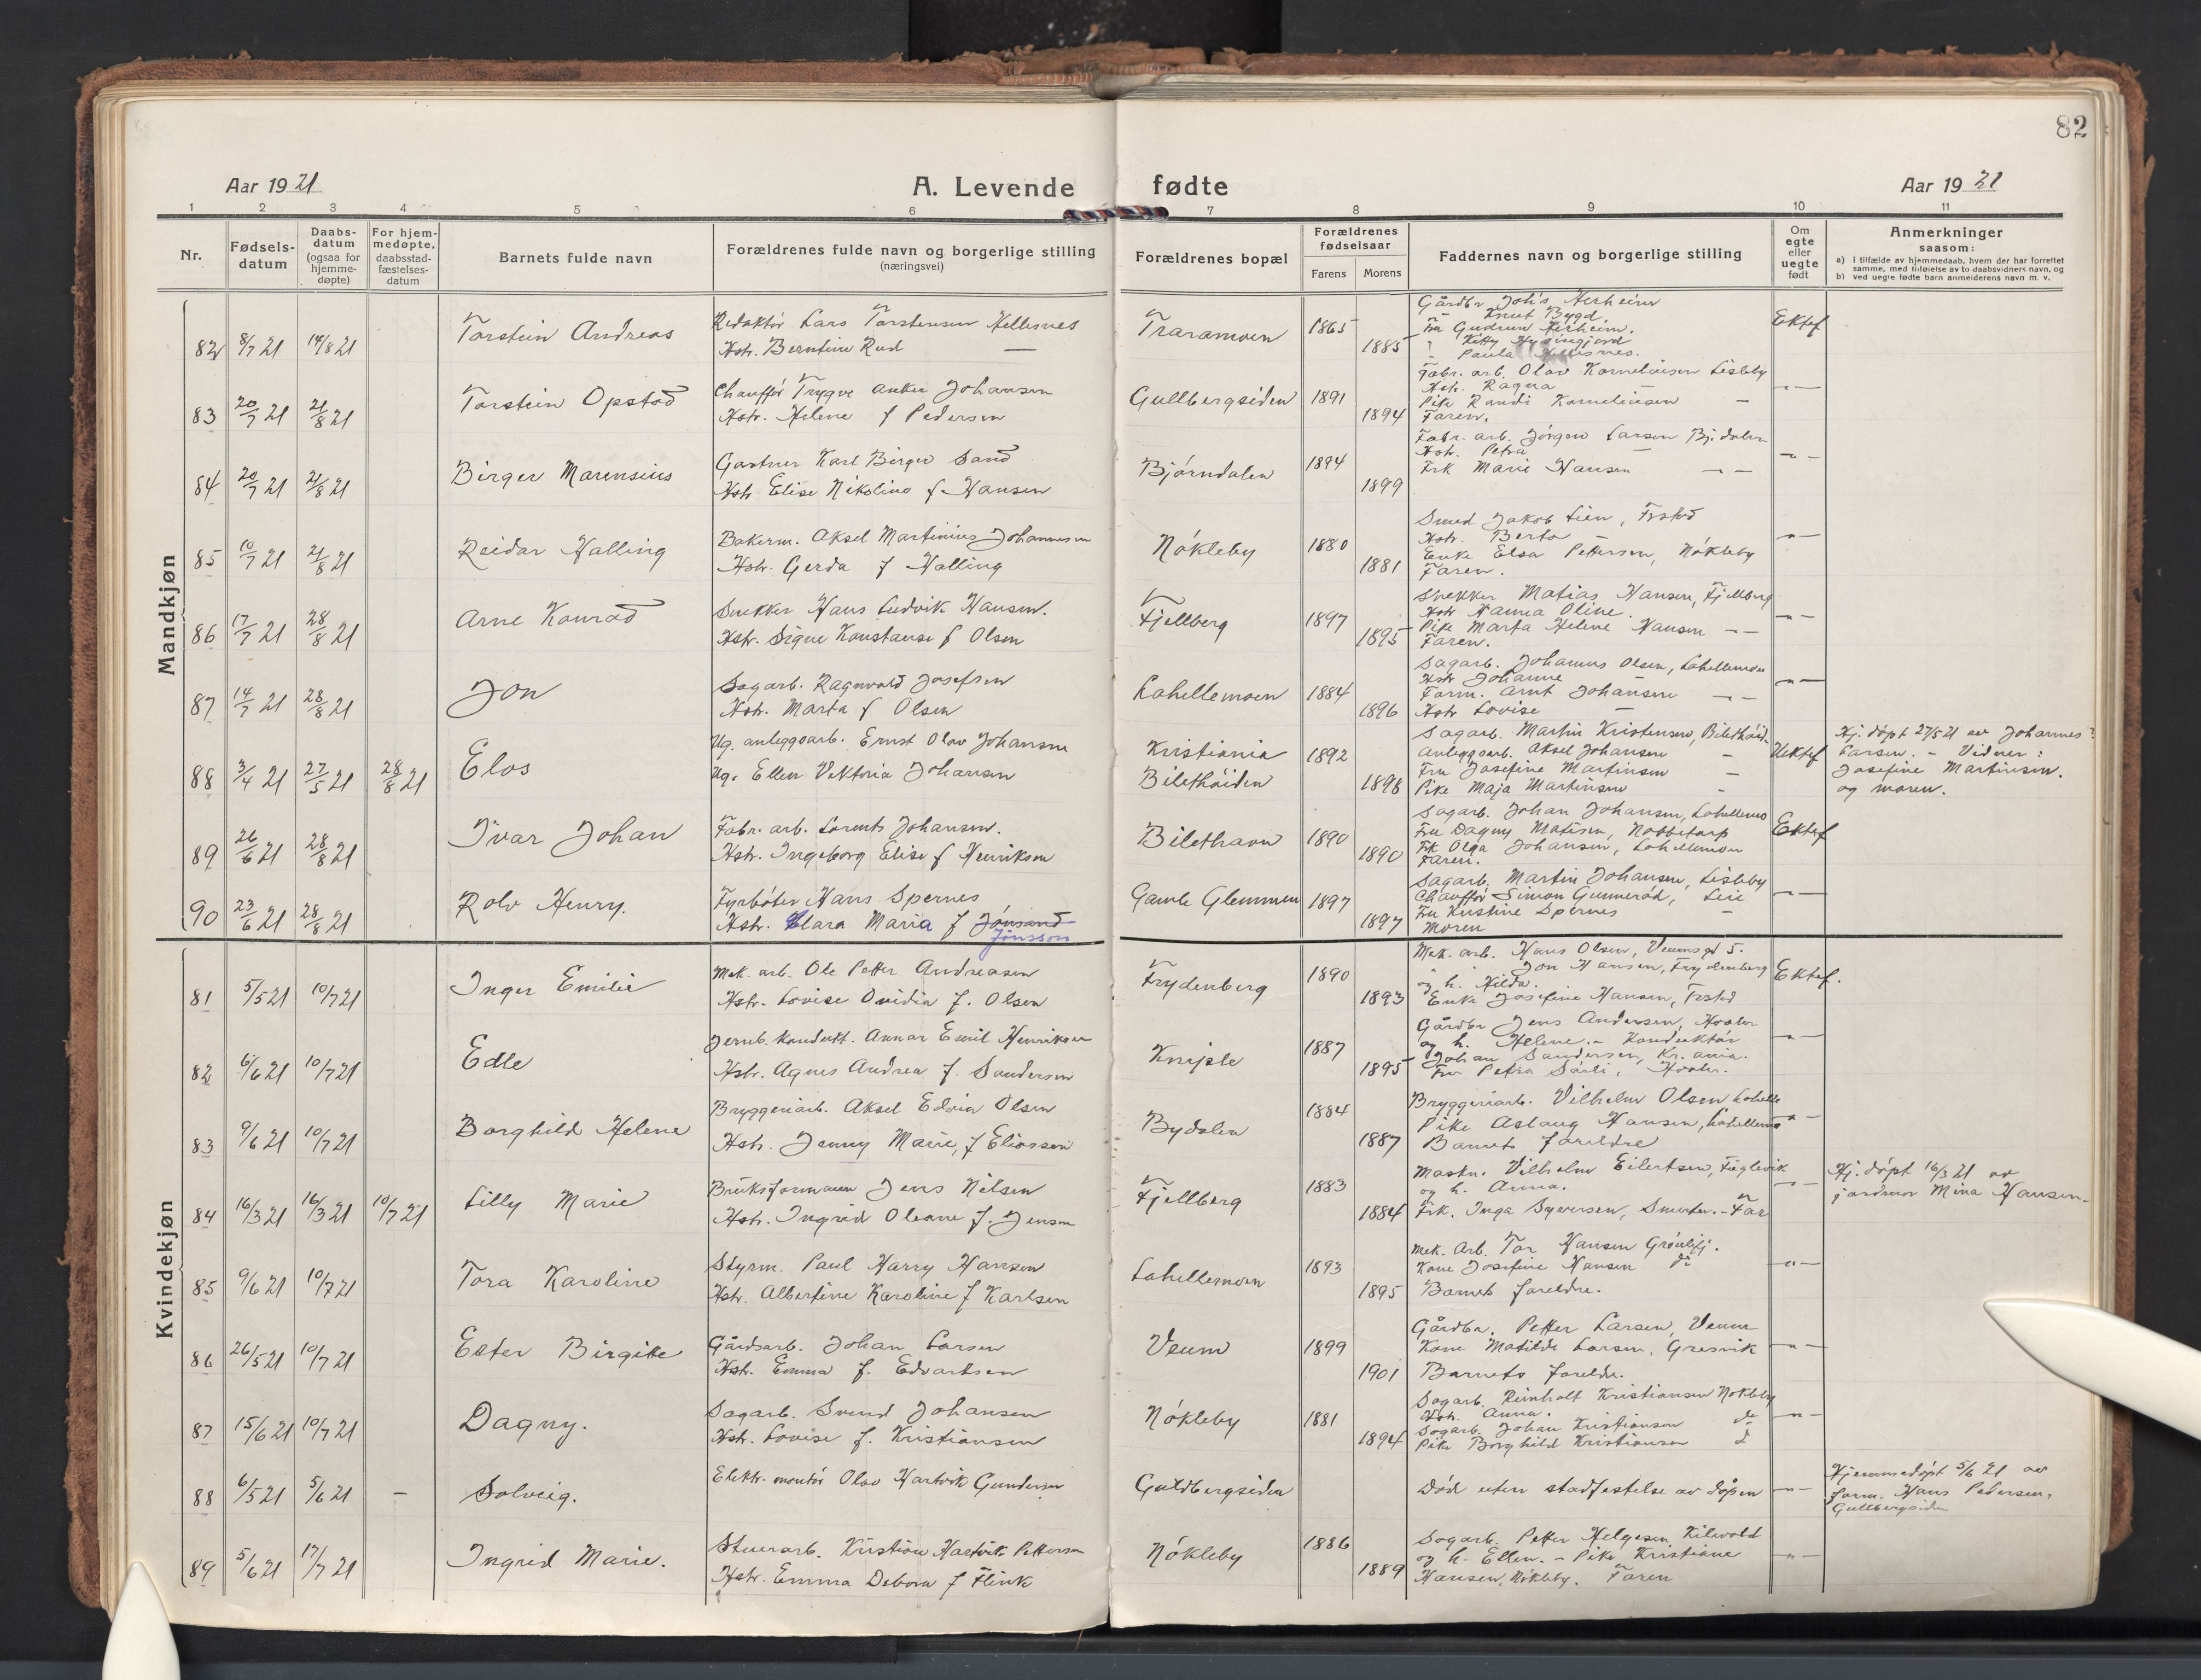 82
Aar 1921
A. Levende fødte
Aar 1921
1 2 3 4 5 6 7 8 9 10 11
Nr.
Fødsels-
datum
Daabs-
datum
(ogsaa for
hjemme-
døpte)
For hjem-
medøpte,
daabsstad-
fæstelses-
datum
Barnets fulde navn
Forældrenes fulde navn og borgerlige stilling
(næringsvei)
Forældrenes bopæl
Forældrenes
fødselsaar
Farens
Morens
Faddernes navn og borgerlige stilling
Om
egte
eller
uegte
født
Anmerkninger
saasom:
a) I tilfælde av hjemmedaab, hvem der har forrettet
samme, med tilføielse av to daabsvidners navn, og
b) ved uegte fødte barn anmelderens navn m. v.
Mandkjøn
82 8/7 21 14/8 21
Torstein Andreas
Redaktør Lars Torstensen Hellesnes
Hstr. Berntine Rud —
Traramoen
1865
1885
Gårdbr Johs Herheim
Knut Bygd
Fru Gudrun Herheim.
Kitty
Paula Hellesnes.
Ektef
83 20/7 21 21/8 21
Torstein Opstad
Chauffør Trygve Anker Johansen
Hstr. Helene f Pedersen
Gullbergsiden
1891
1894
Fabr. arb. Olav Kornelinsen Lisleby
Hstr. Ragna —
Pike Randi Kornelinsen —
Faren.
— " —
84 20/7 21 21/8 21
Birger Marensius
Gartner Karl Birger Sand
Hstr Elise Nikoline f Hansen
Bjørndalen
1894
1899
Fabr. arb. Jörgen Larsen Bj.dalen
Hstr. Petra —
Frk Marie Hansen — —
— " —
85 10/7 21 21/8 21
Reidar Halling
Bakerm. Aksel Martinius Johannesen
Hstr. Gerda f Halling
Nökleby
1880
1881
Smed Jakob Lien, Frstad
Hstr. Berta —
Enke Elsa Pettersen, Nökleby
Faren.
— " —
86 17/7 21 28/8 21
Arne Konrad
Snekker Hans Ludvik Hansen.
Hstr. Signe Konstanse f Olsen
Fjellberg
1897
1895
Snekker Matias Hansen, Fjellberg
Hstr Hanna Oline
Pike Marta Helene Hansen — —
Faren.
— " —
87 14/7 21 28/8 21
Jon
Sagarb. Ragnvald Josefsen
Hstr. Marta f Olsen
Lahellemoen
1884
1896
Sagarb. Johannes Olsen, Lahellemoen
Hstr Johanne —
Form. Arnt Johansen — —
Hstr Lovise —
— " —
88 3/4 21 27/5 21 28/8 21
Elas
Ug. anleggsarb. Ernst Olav Johansen
Ug. Ellen Viktoria Johansen
Kristiania
Bilethöiden
1892
1898
Sagarb. Martin Kristensen, Bilethöid.
Anleggsarb. Aksel Johansen —
Fru Josefine Martinsen —
Pike Maja Martinsen —
Uektef
Hj. döpt 27/5 21 av Johannes
Larsen. – Vidner:
Josefine Martinsen.
og moren.
89 26/6 21 28/8 21
Ivar Johan
Fabr. arb. Lorents Johansen.
Hstr. Ingeborg Elise f Henriksen
Bilethavn
1890
1890
Sagarb. Johan Johansen, Lahellemo
Fru Dagny Matisen, Nabbetorp
Frk Olga Johansen, Lahellemoen
Faren.
Ektef
90 23/6 21 28/8 21
Rolv Henry.
Fyrböter Hans Spernes
Hstr. Klara Maria f Jönsand
Jönsson
Gamle Glemmen
1897
1897
Sagarb. Martin Johansen, Lisleby
Chauffør Simon Gunneröd, Lie
Fru Kristine Spernes —
Moren
— " —
Kvindekjøn
81 5/5 21 10/7 21
Inger Emilie
Mek. arb. Ole Petter Andreasen
Hstr. Lovise Ovidia f. Olsen
Frydenberg
1890
1893
Mek. arb. Hans Olsen, Veumsgt 5.
" " Jon Hansen, Frydenberg
og h. Hilda.
Enke Josefine Hansen, Frstad
Ektef.
82 6/6 21 10/7 21
Edle
Jernb. kondukt. Annar Emil Henriksen
Hstr. Agnes Andrea f. Sandersen
Kniple
1887
1895
Gårdbr Jens Andersen, Hvaler
og h. Helene. – Konduktør
Johan Sandersen, Kr.ania.
Fru Petra Sörli, Hvaler.
— " —
83 9/6 21 10/7 21
Borghild Helene
Bryggeriarb. Aksel Edvin Olsen
Hstr. Jenny Marie, f Eliassen
Bydalen
1884
1887
Bryggeriarb. Vilhelm Olsen Lahelle
Pike Aslaug Hansen, Lahellemo
Barnets foreldre
— " —
84 16/3 21 16/3 21 10/7 21
Lilly Marie
Bruksformann Jens Nilsen
Hstr. Ingrid Oleane f. Jensen
Fjellberg
1883
1884
Maskn. Vilhelm Eilertsen, Fuglevik
og h. Anna.
Frk. Inga Syversen, – Far
— " —
Hj. döpt 16/3 21 av
jordmor Mina Hansen.
85 9/6 21 10/7 21
Tora Karoline
Styrm. Paul Harry Hansen
Hstr. Albertine Karoline f Karlsen
Lahellemoen
1893
1895
Mek. Arb. Tor Hansen Grönlifj.
Kone Josefine Hansen do
Barnets foreldre.
— " —
86 26/5 21 10/7 21
Ester Birgitte
Gårdsarb. Johan Larsen
Hstr. Emma f. Edvartsen
Veum
1899
1901
Gårdbr. Petter Larsen, Veum
Kone Matilde Larsen, Gresvik
Barnets foreldre.
— " —
87 15/6 21 10/7 21
Dagny.
Sagarb. Svend Johansen
Hstr. Lovise f. Kristiansen
Nökleby
1881
1894
Sagarb. Reinholt Kristiansen Nökleby
Hstr. Anna.
Sagarb. Johan Kristiansen do
Pike Borghild Kristiansen d
— " —
88 6/5 21 5/6 21 –
Solveig.
Elektr. montör Olav Hartvik Gundersen
Guldbergsiden
Död uten stadfestelse av dåpen
— " —
Hjemmedöpt 5/6 21 av
form. Hans Pedersen,
Gullbergsiden
89 5/6 21 17/7 21
Ingrid Marie.
Stuerarb. Kristian Hartvik Pettersen
Hstr. Emma Debora f Flink
Nökleby
1886
1889
Sagarb. Petter Helgesen Kilevold
og h. Ellen. – Pike Kristiane
Hansen, Nökleby. Faren
— " —